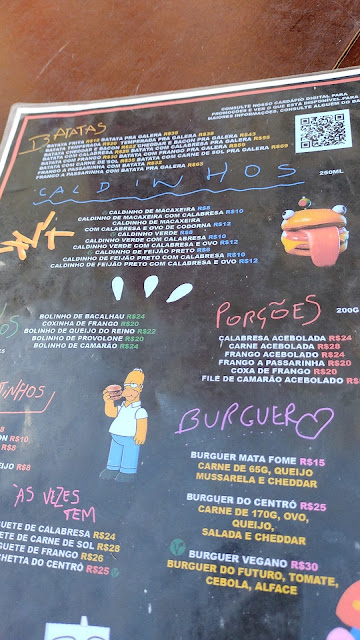 CONSULTE NOSSO CARDÁPIO DIGITAL PARA
PROMOÇÕES E VER O QUE ESTÁ DISPONÍVEL PARA
MAIORES INFORMAÇÕES, CONSULTE ALGUÉM DO
BATATAS
BATATA FRITA BATATA PRA GALERA
BATATA TEMPERADA R$20 TEMPERADA PRA GALERA
BATATA CHEDDAR E BACON PRA GALERA
BATATA COM CALABRESA PRA GALERA
BATATA COM FRANGO PRA GALERA
BATATA COM CARNE DE SOL BATATA COM CARNE DE SOL PRA GALERA R$69
FRANGO A PASSARINHA COM BATATA PRA GALERA R$65
CALDINHOS
250ML
CALDINHO DE MACAXEIRA R$8
CALDINHO DE MACAXEIRA COM CALABRESA R$10
CALDINHO DE MACAXEIRA
COM CALABRESA E OVO DE CODORNA R$12
CALDINHO VERDE R$8
CALDINHO VERDE COM CALABRESA R$10
CALDINHO VERDE COM CALABRESA E OVO R$12
CALDINHO DE FEIJÃO PRETO R$8
CALDINHO DE FEIJÃO PRETO COM CALABRESA R$10
CALDINHO DE FEIJÃO PRETO COM CALABRESA E OVO R$12
OS
BOLINHO DE BACALHAU R$24
COXINHA DE FRANGO R$20
BOLINHO DE QUEIJO DO REINO R$22
BOLINHO DE PROVOLONE R$20
BOLINHO DE CAMARÃO R$24
PORÇÕES
200G
CALABRESA ACEBOLADA R$24
CARNE ACEBOLADA R$28
FRANGO ACEBOLADO R$24
FRANGO A PASSARINHA R$20
COXA DE FRANGO R$20
FILE DE CAMARÃO ACEBOLADO
TINHOS
R$8
ON R$10
R$8
EIJO R$8
BURGUER
BURGUER MATA FOME R$15
CARNE DE 65G, QUEIJO
MUSSARELA E CHEDDAR
BURGUER DO CENTRÓ R$25
CARNE DE 170G, OVO,
QUEIJO,
SALADA E CHEDDAR
BURGUER VEGANO R$30
BURGUER DO FUTURO, TOMATE,
CEBOLA, ALFACE
ÀS VEZES
TEM
UETE DE CALABRESA R$24
UETE DE CARNE DE SOL R$28
GUETE DE FRANGO R$26
CHETTA DO CENTRÓ R$25